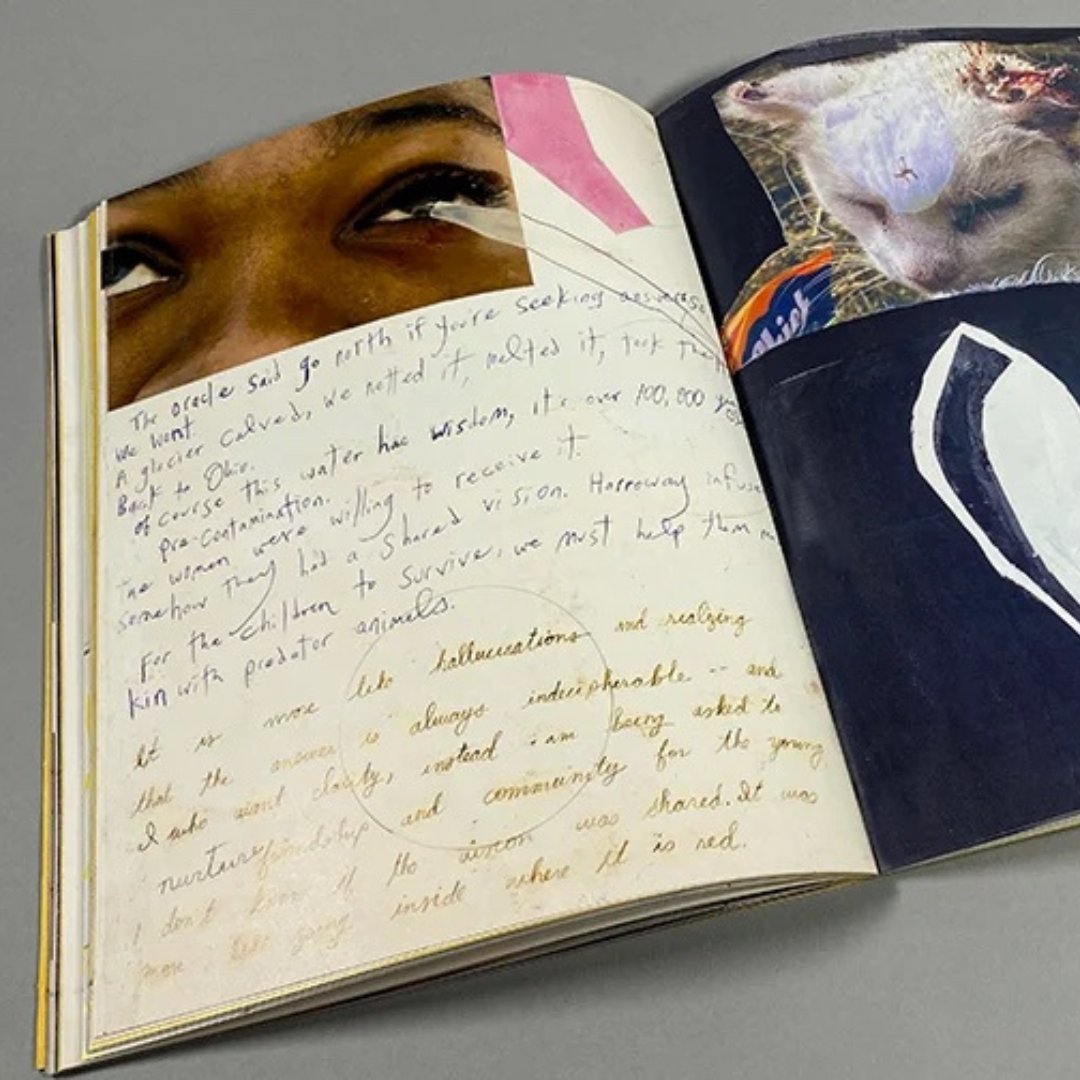 The oracle said go north if you're seeking answers
We went
A glacier calved, we netted it, melted it, took the
Back to Ohio.
of course this water has wisdom, it's over 100,000
pre-contamination.
The women were willing to receive it
somehow they had a shared vision. Harroway
For the children to survive, we must help them
kin with predator animals.
It is more like hallucinations and realizing
that the answer is always indecipherable -- and
I who want clarity, instead i am being asked to
nurture friendship and community for the young
I don't know if the vision was shared. It was
more like going inside where it is red.